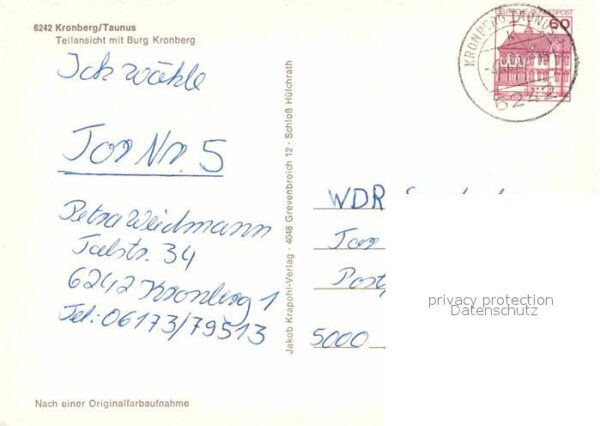 6242 Kronberg/Taunus
Teilansicht mit Burg Kronberg
Ich wähle
Tor Nr. 5
Petra Weidmann
Talstr. 34
6242 Kronberg 1
Tel.: 06173/79513
Nach einer Originalfarbaufnahme
Jakob Krapohl-Verlag · 4048 Grevenbroich 12 · Schloß Hülchrath
DEUTSCHE BUNDESPOST
60
KRONBERG, TAUNUS
6242
WDR
Tor
5000
privacy protection
Datenschutz